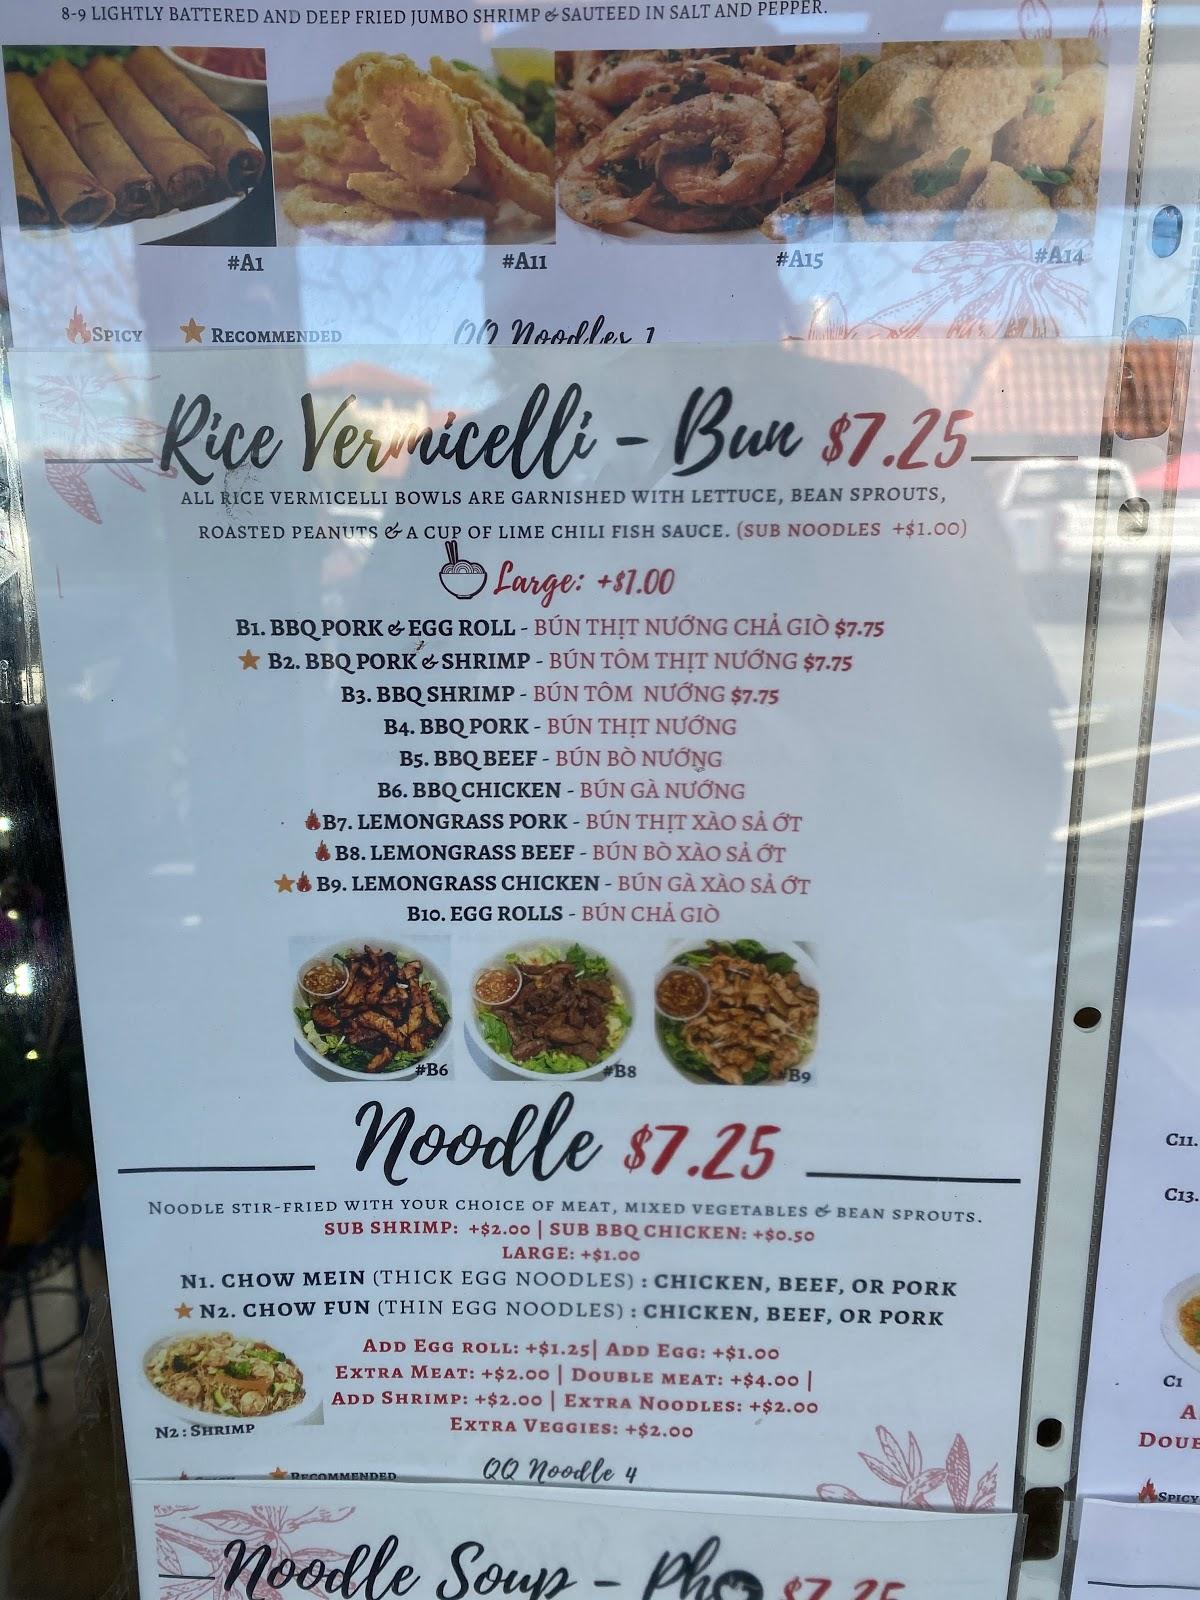 8-9 LIGHTLY BATTERED AND DEEP FRIED JUMBO SHRIMP & SAUTEED IN SALT AND PEPPER.
#A1
#A11
#A15
#A14
SPICY
RECOMMENDED
QQ Noodles 1
Rice Vermicelli - Bun $7.25
ALL RICE VERMICELLI BOWLS ARE GARNISHED WITH LETTUCE, BEAN SPROUTS,
ROASTED PEANUTS & A CUP OF LIME CHILI FISH SAUCE. (SUB NOODLES +$1.00)
Large: +$1.00
B1. BBQ PORK & EGG ROLL - BÚN THỊT NƯỚNG CHẢ GIÒ $7.75
B2. BBQ PORK & SHRIMP - BÚN TÔM THỊT NƯỚNG $7.75
B3. BBQ SHRIMP - BÚN TÔM NƯỚNG $7.75
B4. BBQ PORK - BÚN THỊT NƯỚNG
B5. BBQ BEEF - BÚN BÒ NƯỚNG
B6. BBQ CHICKEN - BÚN GÀ NƯỚNG
B7. LEMONGRASS PORK - BÚN THỊT XÀO SẢ ỚT
B8. LEMONGRASS BEEF - BÚN BÒ XÀO SẢ ỚT
B9. LEMONGRASS CHICKEN - BÚN GÀ XÀO SẢ ỚT
B10. EGG ROLLS - BÚN CHẢ GIÒ
#B6
#B8
#B9
Noodle $7.25
NOODLE STIR-FRIED WITH YOUR CHOICE OF MEAT, MIXED VEGETABLES & BEAN SPROUTS.
SUB SHRIMP: +$2.00 | SUB BBQ CHICKEN: +$0.50
LARGE: +$1.00
N1. CHOW MEIN (THICK EGG NOODLES) : CHICKEN, BEEF, OR PORK
N2. CHOW FUN (THIN EGG NOODLES) : CHICKEN, BEEF, OR PORK
ADD EGG ROLL: +$1.25| ADD EGG: +$1.00
EXTRA MEAT: +$2.00 | DOUBLE MEAT: +$4.00 |
ADD SHRIMP: +$2.00 | EXTRA NOODLES: +$2.00
EXTRA VEGGIES: +$2.00
N2 : SHRIMP
RECOMMENDED
QQ Noodle 4
Noodle Soup - Pho $7.25
C11.
C13.
C1
SPICY